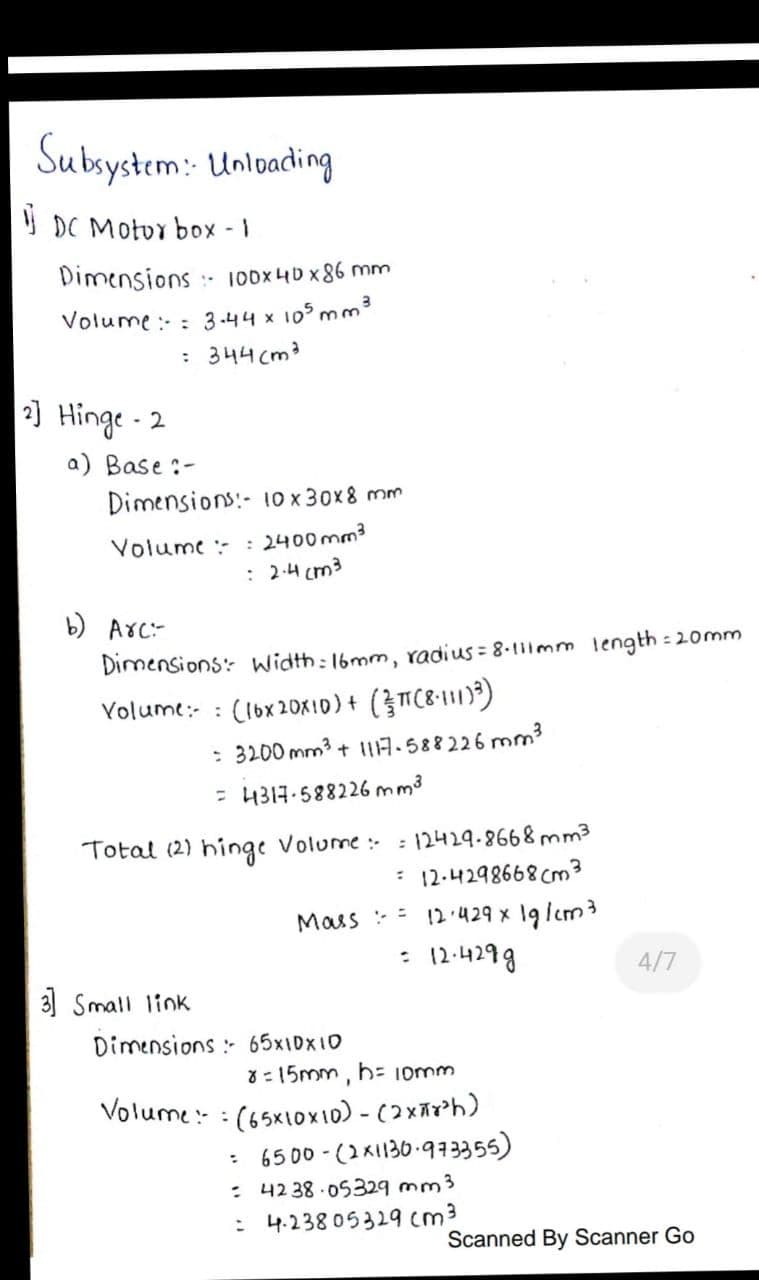 Subsystem:- Unloading
1] DC Motor box - 1
Dimensions :- 100x40x86 mm
Volume :- = 3.44 x 10⁵ mm³
= 344 cm³
2] Hinge - 2
a) Base :-
Dimensions:- 10x30x8 mm
Volume :- = 2400 mm³
= 2.4 cm³
b) Arc:-
Dimensions:- Width = 16mm, radius = 8.111mm length = 20mm
Volume:- = (16x20x10) + (⅔π(8.111)³)
= 3200 mm³ + 1117.588226 mm³
= 4317.588226 mm³
Total (2) hinge Volume :- = 12429.8668 mm³
= 12.4298668 cm³
Mass :- = 12.429 x 1g/cm³
= 12.429g
4/7
3] Small link
Dimensions :- 65x10x10
r = 15mm, h = 10mm
Volume:- = (65x10x10) - (2xπr²h)
= 6500 - (2x1130.973355)
= 4238.05329 mm³
= 4.23805329 cm³
Scanned By Scanner Go